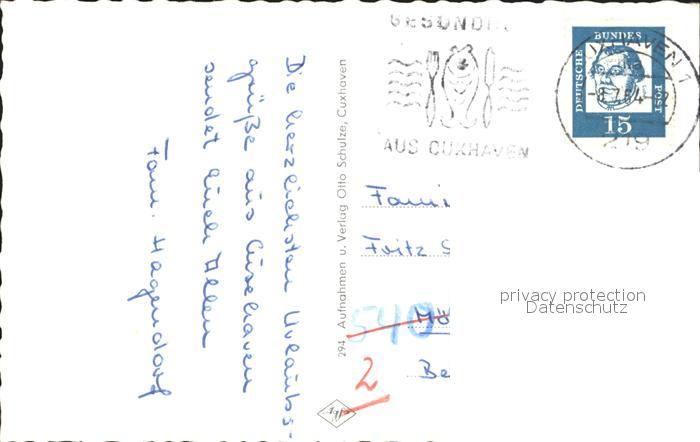 GESUND
AUS CUXHAVEN
CUXHAVEN 1
-8.7.64-
219
DEUTSCHE
BUNDES
POST
15
Die herzlichsten Urlaubs-
grüße aus Cuxhaven
sendet Euch Allen
Fam. Hagendorf
294 Aufnahmen u. Verlag Otto Schulze, Cuxhaven
Fami
Fritz S
540
Mö
2
Be
privacy protection
Datenschutz